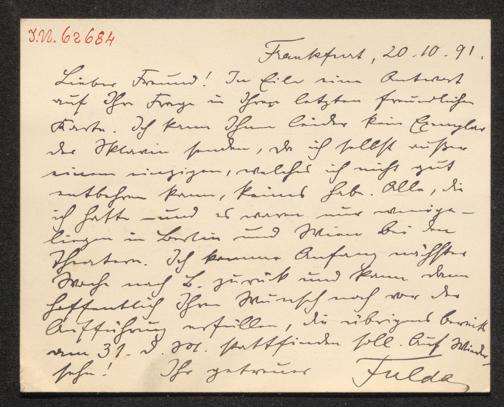 I.N. 62684
Frankfurt, 20.10.91.
Lieber Freund! In Eile eine Antwort
auf Ihre Frage in Ihrer letzten freundlichen
Karte. Ich kann Ihnen leider kein Exemplar
der Sklavin senden, da ich selbst außer
einem einzigen, welches ich nicht gut
entbehren kann, keines habe. Alle, die
ich hatte – und es waren nur wenige –
liegen in Berlin und Wien bei den
Theatern. Ich komme Anfang nächster
Woche nach B. zurück und kann dann
hoffentlich Ihren Wunsch noch vor der
Aufführung erfüllen, die übrigens bereits
am 31. d. M. stattfinden soll. Auf Wieder-
sehn! Ihr getreuer Fulda